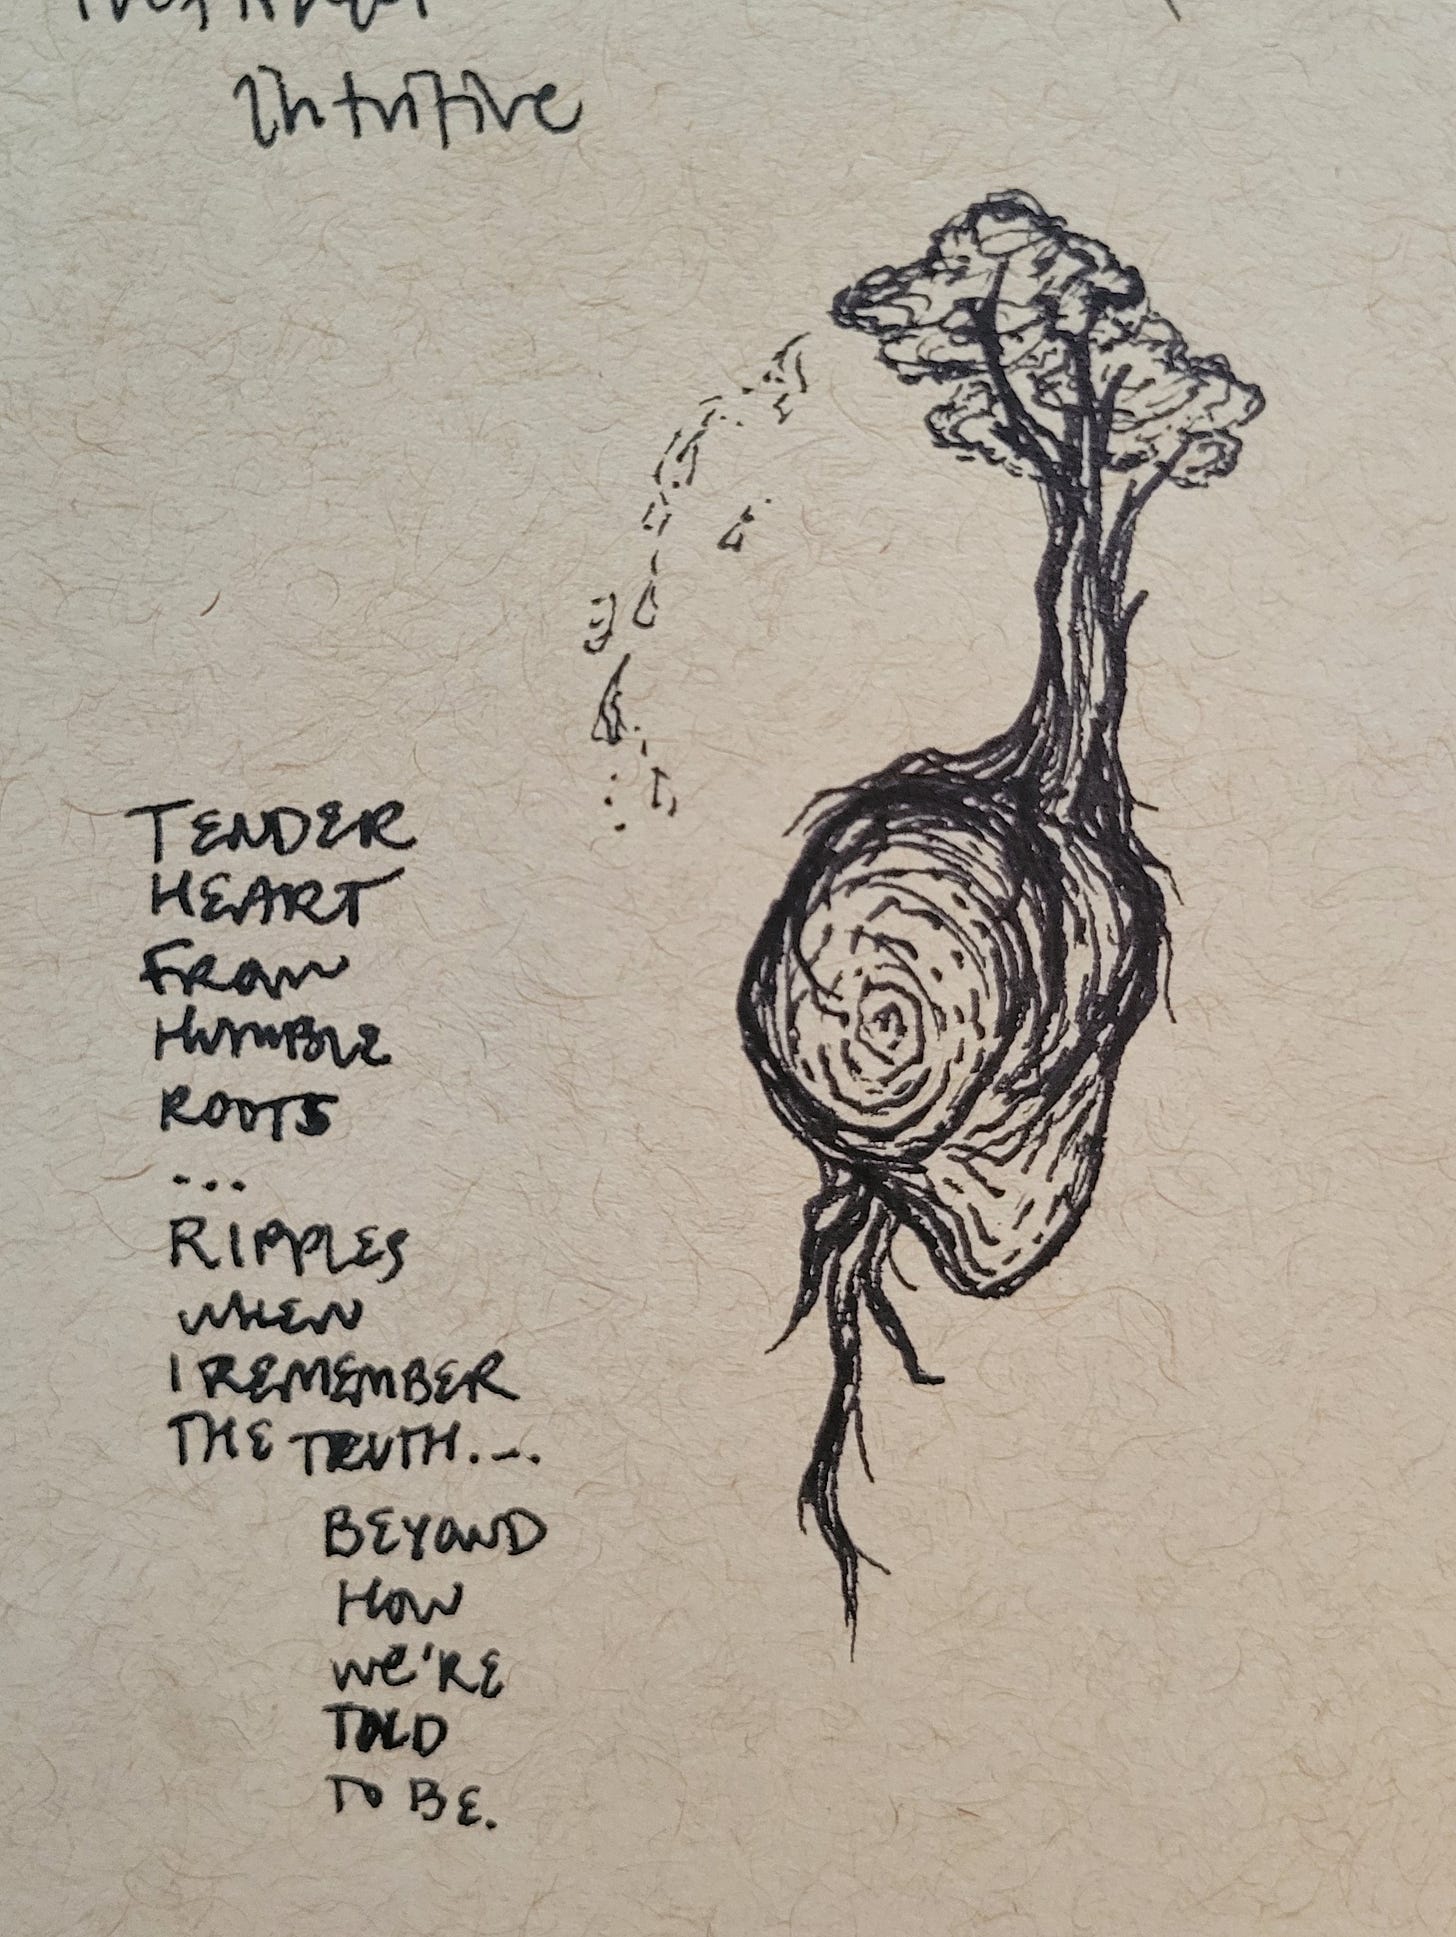 Intuitive
TENDER
HEART
FROM
HUMBLE
ROOTS
...
RIPPLES
WHEN
I REMEMBER
THE TRUTH...
BEYOND
HOW
WE'RE
TOLD
TO BE.